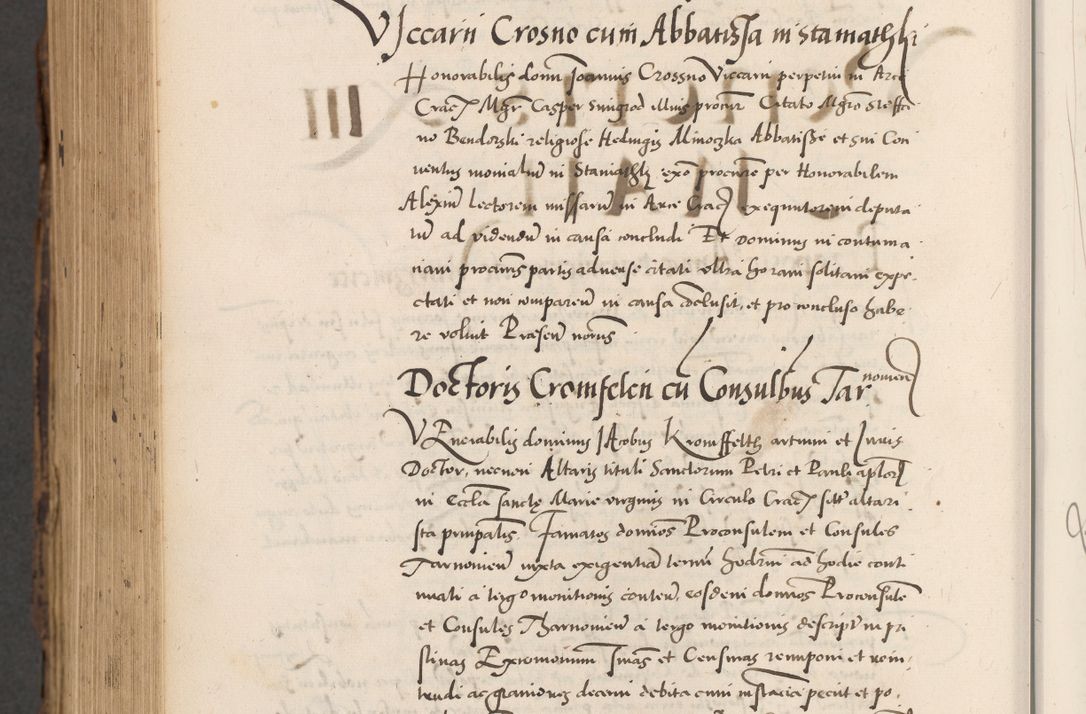 Viccarii Crosno cum Abbatissa in stamathki
Honorabilis domi Joannis Crossno Viccarii perpetui in Arce
Crac Mgr Casper smigrod illius procur Citato Mgro Steffa
no Bendorski religiose Hedwigis Minoczka Abbatisse et sui Con
ventus monialiu in Staniathki exo procure per Honorabilem
Alexiu Lectorem missaru in Arce Crac exequutorem deputa
tu ad videndu in causa concludi Et Dominus in contuma
ciam procuris partis adverse citati ultra horam solitam expe
ctati et non comparen in causa coclusit, et pro concluso habe
re voluit Presen
Doctoris Cromfelcii cu Consulibus Tarnovien
VEnerabilis dominus JAcobus Kromffeltz artium et Juris
Doctor, necnon Altaris tituli Sanctorum Petri et Pauli aplor
in Eccla sancte Marie virginis in Circulo Crac siti altari
sta principalis, Famatos domios Proconsulem et Consules
Tarnovien iuxta exigentia termi hodierni ad hodie conti
nuati a tergo monitionis conten, eosdem domios Proconsule
et Consules Tharnovien a tergo monitionis descript in pri
stinas Excommum suas et Censuras reimponi et
trudi ac graviones decerni debita cum instacia peciit et po